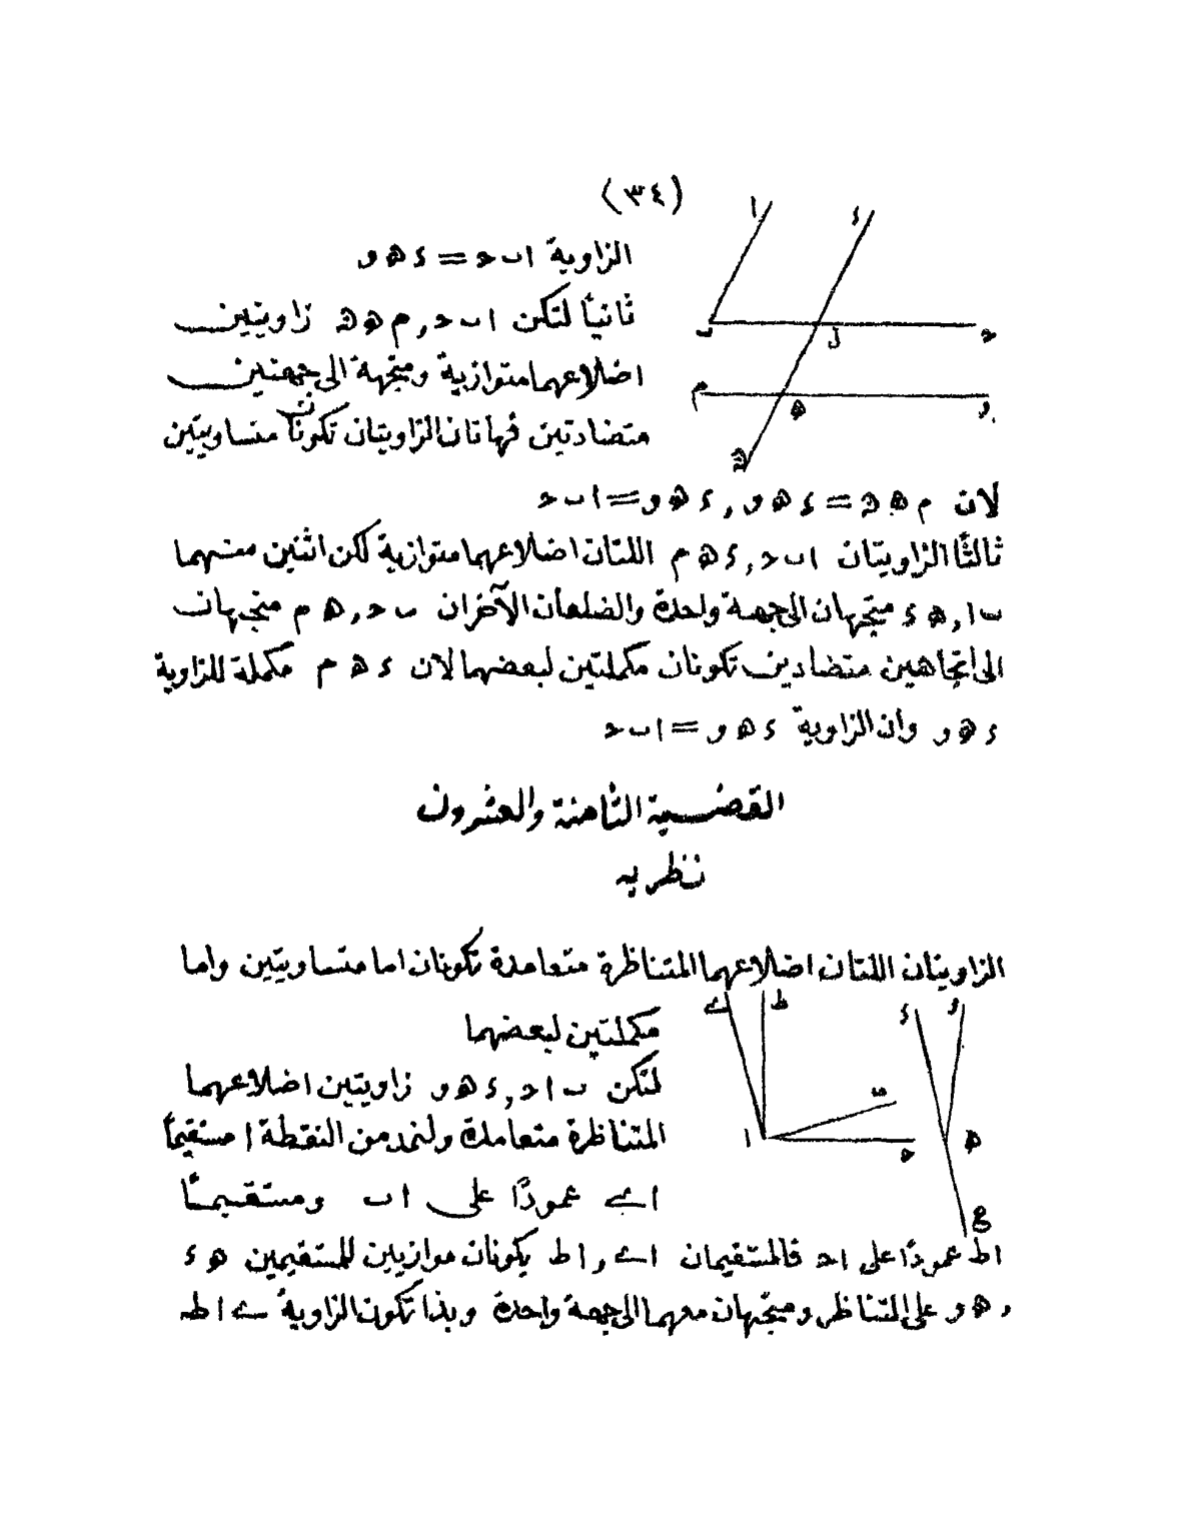 (٣٤)
الزاوية ا ب ح = ء ه و
ثانياً لتكن ا ب ح , م ه ق زاويتين
اضلاعهما متوازية ومتجهة الى جهتين
متضادتين فهاتان الزاويتان تكونان متساويتين
لان م ه ق = ء ه و , ء ه و = ا ب ح
ثالثًا الزاويتان ا ب ح , ء ه م اللتان اضلاعهما متوازية لكن اثنين منهما
ب ا , ه ء متجهان الى جهة واحدة والضلعان الآخران ب ح , ه م متجهان
الى اتجاهين متضادين تكونان مكملتين لبعضهما لان ء ه م مكملة للزاوية
ء ه و وان الزاوية ء ه و = ا ب ح
القضية الثامنة والعشرون
نظريه
الزاويتان اللتان اضلاعهما المتناظرة متعامدة تكونان اما متساويتين واما
مكملتين لبعضهما
لتكن ب ا ح , ء ه و زاويتين اضلاعهما
المتناظرة متعامدة ولنمد من النقطة ا مستقيماً
ا ے عمودًا على ا ب ومستقيمًا
ا ط عمودًا على ا ح فالمستقيمان ا ے , ا ط يكونان موازيين للمستقيمين ه ء
, ه و على التناظر ومتجهان معهما الى جهة واحدة وبذا تكون الزاوية ے ا ط